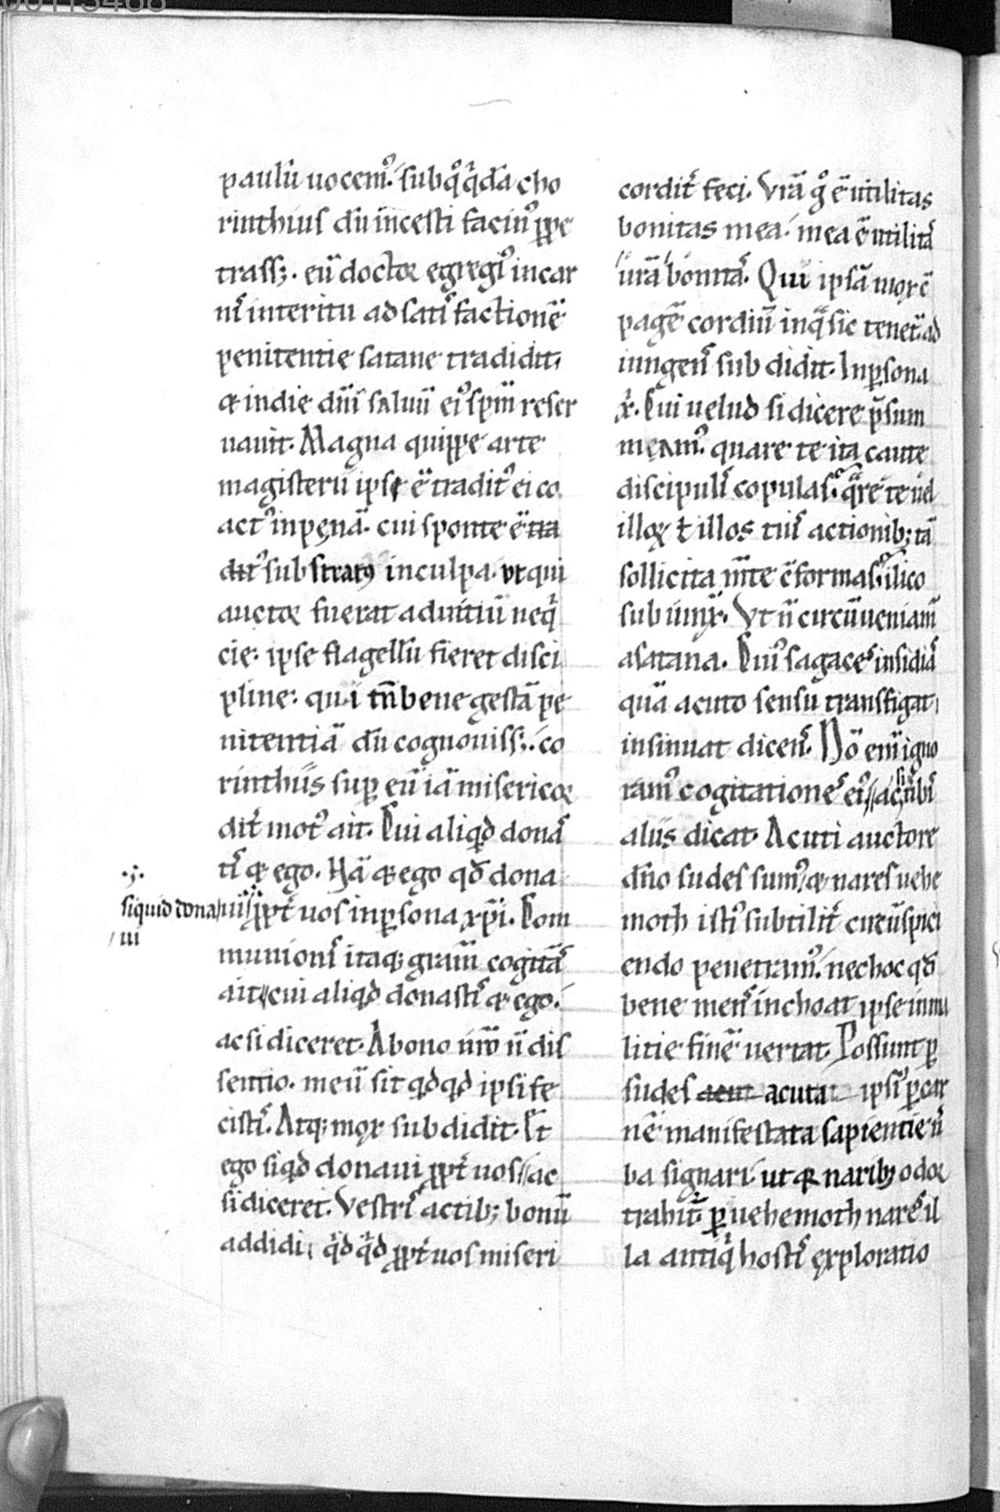 paulū uocem᷒. sub q᷒ q̇dā cho
rinthius dū incesti facin᷒ ꝑpe
trass;. eū doctor egregi᷒ in car
nis interitu ad satisfactionē
penitentie satane tradidit,
& in die dn̄i saluū ei᷒ sp̄m reser
uauit. Magna quippe arte
magisterii ipse ē tradit᷒ ei co
act᷒ in pęnā. cui sponte ē tra
dit᷒ substrat᷒ in culpa. ut qui
auctor fuerat ad uitiū neq̇
cie. ipse flagellū fieret disci
pline. qui tn̄ bene gestā pe
nitentiā dū cognouiss;. co
rinthiis suꝑ eū iā misericor
dit̾ mot᷒ ait. Cui aliqd donas
tis & ego. Nā & ego qd̄ dona
ui ꝓpt̾ uos in ꝑsona xp̄i. Com
siquid dona
ui
munionis itaq; gratiā cogitās
ait. cui aliqd donastis & ego.
ac si diceret. A bono ur̄o n̄ dis
sentio. meū sit qdqd ipsi fe
cistis. Atq; mox subdidit. Et
ego siqd donaui ꝓpt̾ uos. ac
si diceret. Vestris actib; bonū
addidi, q̇d q̇d ꝓpt̾ uos miseri
cordit̾ feci. Vr̄a g᷒ ē utilitas
bonitas mea. mea ē utilitas
ur̄a bonitas. Qui ipsā mox cō
pagē cordiū in q̄ sic tenet̾ ad
iungens subdidit. In ꝑsona
x̄. Cui uelud si dicere p̄sum
meam᷒. quare te ita caute
discipulis copulas. q̄re te uel
illox ł illos tuis actionib; tā
sollicita m̄te cōformas. ilico
subiunx̄. Vt n̄ circūueniam̄
a satana. Cui᷒ sagaces insidiās
quā acuto sensu transfigat,
insinuat dicens. Nō eni igno
ram᷒ cogitationes ei᷒. ac si u̇bis
aliis dicat. Acuti auctore
dn̄o sudes sum᷒, & nares uehe
moth isti᷒ subtilit̾ circūspici
endo penetram᷒. ne hoc qd̄
bene mens inchoat ipse in ma
litie finē uertat. Possunt ꝑ
sudes acuta ipsi᷒ ꝑ car
nē manifestata sapientie u̇
ba signari. ut & narib; odor
trahit̾ ꝑ uehemoth nares il
la antiq̇ hostis exploratio